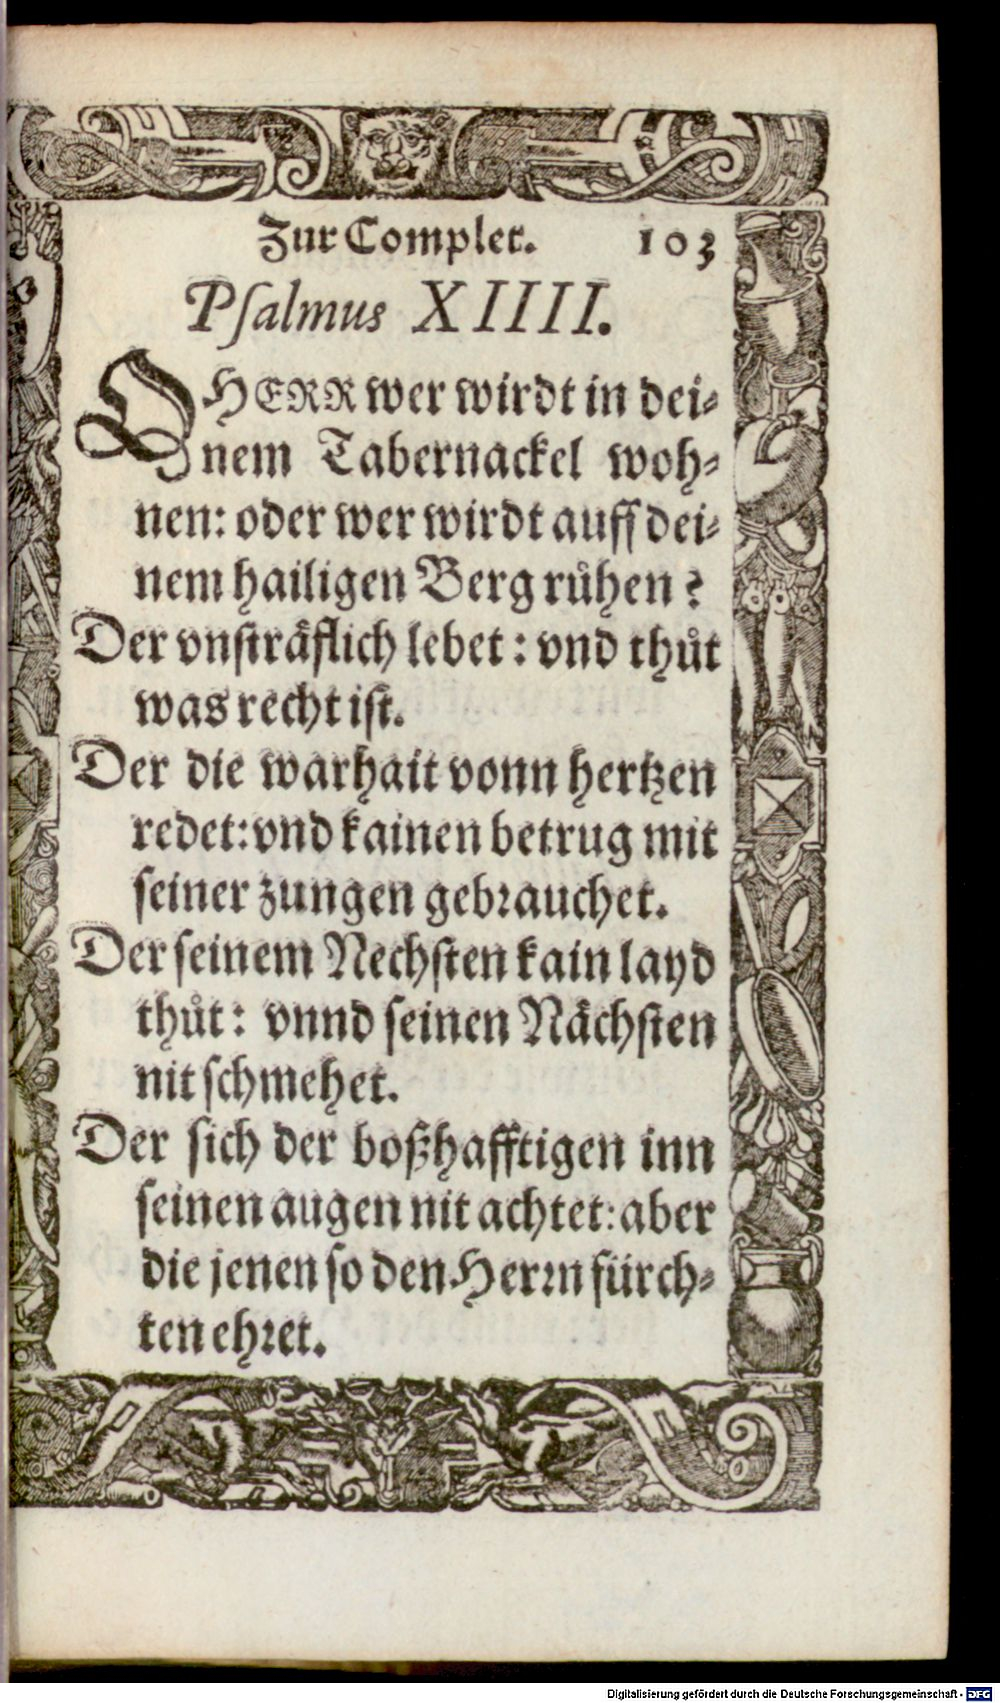 Zur Complet. 103
Pſalmus XIIII.
O HERR wer wirdt in dei⸗
nem Tabernackel woh⸗
nen: oder wer wirdt auff dei⸗
nem hailigen Berg ruͤhen?
Der vnſtraͤflich lebet: vnd thuͦt
was recht iſt.
Der die warhait vonn hertzen
redet: vnd kainen betrug mit
ſeiner zungen gebrauchet.
Der ſeinem Nechſten kain layd
thuͦt: vnnd ſeinen Naͤchſten
nit ſchmehet.
Der ſich der boßhafftigen inn
ſeinen augen nit achtet: aber
die jenen ſo den Herrn fürch⸗
ten ehret.
Digitalisierung gefördert durch die Deutsche Forschungsgemeinschaft - DFG